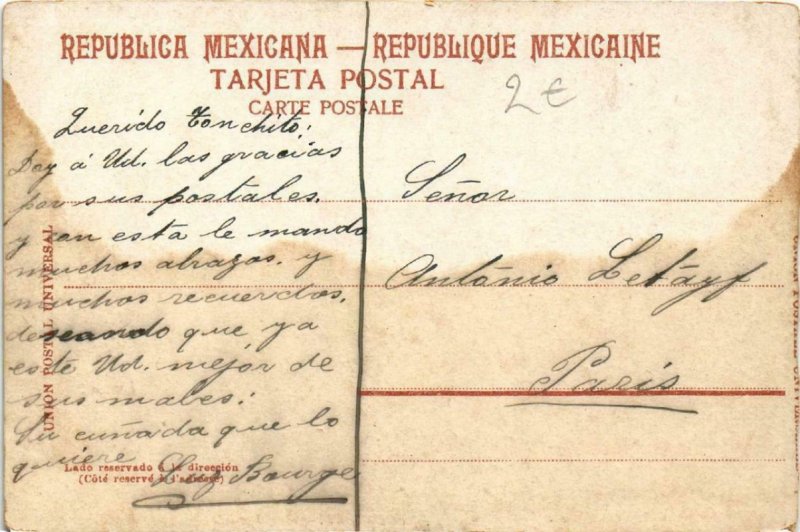 REPUBLICA MEXICANA — REPUBLIQUE MEXICAINE
TARJETA POSTAL
CARTE POSTALE
2€
Querido Tonchito:
Doy á Ud. las gracias
por sus postales.
y con esta le mando
muchos abrazos. y
muchos recuerdos.
deseando que ya
este Ud. mejor de
sus males.
Su cuñada que lo
quiere
Luz Bourge
Señor
António Letayf
Paris
UNION POSTAL UNIVERSAL
Lado reservado á la dirección
(Côté reservé à l'adresse)